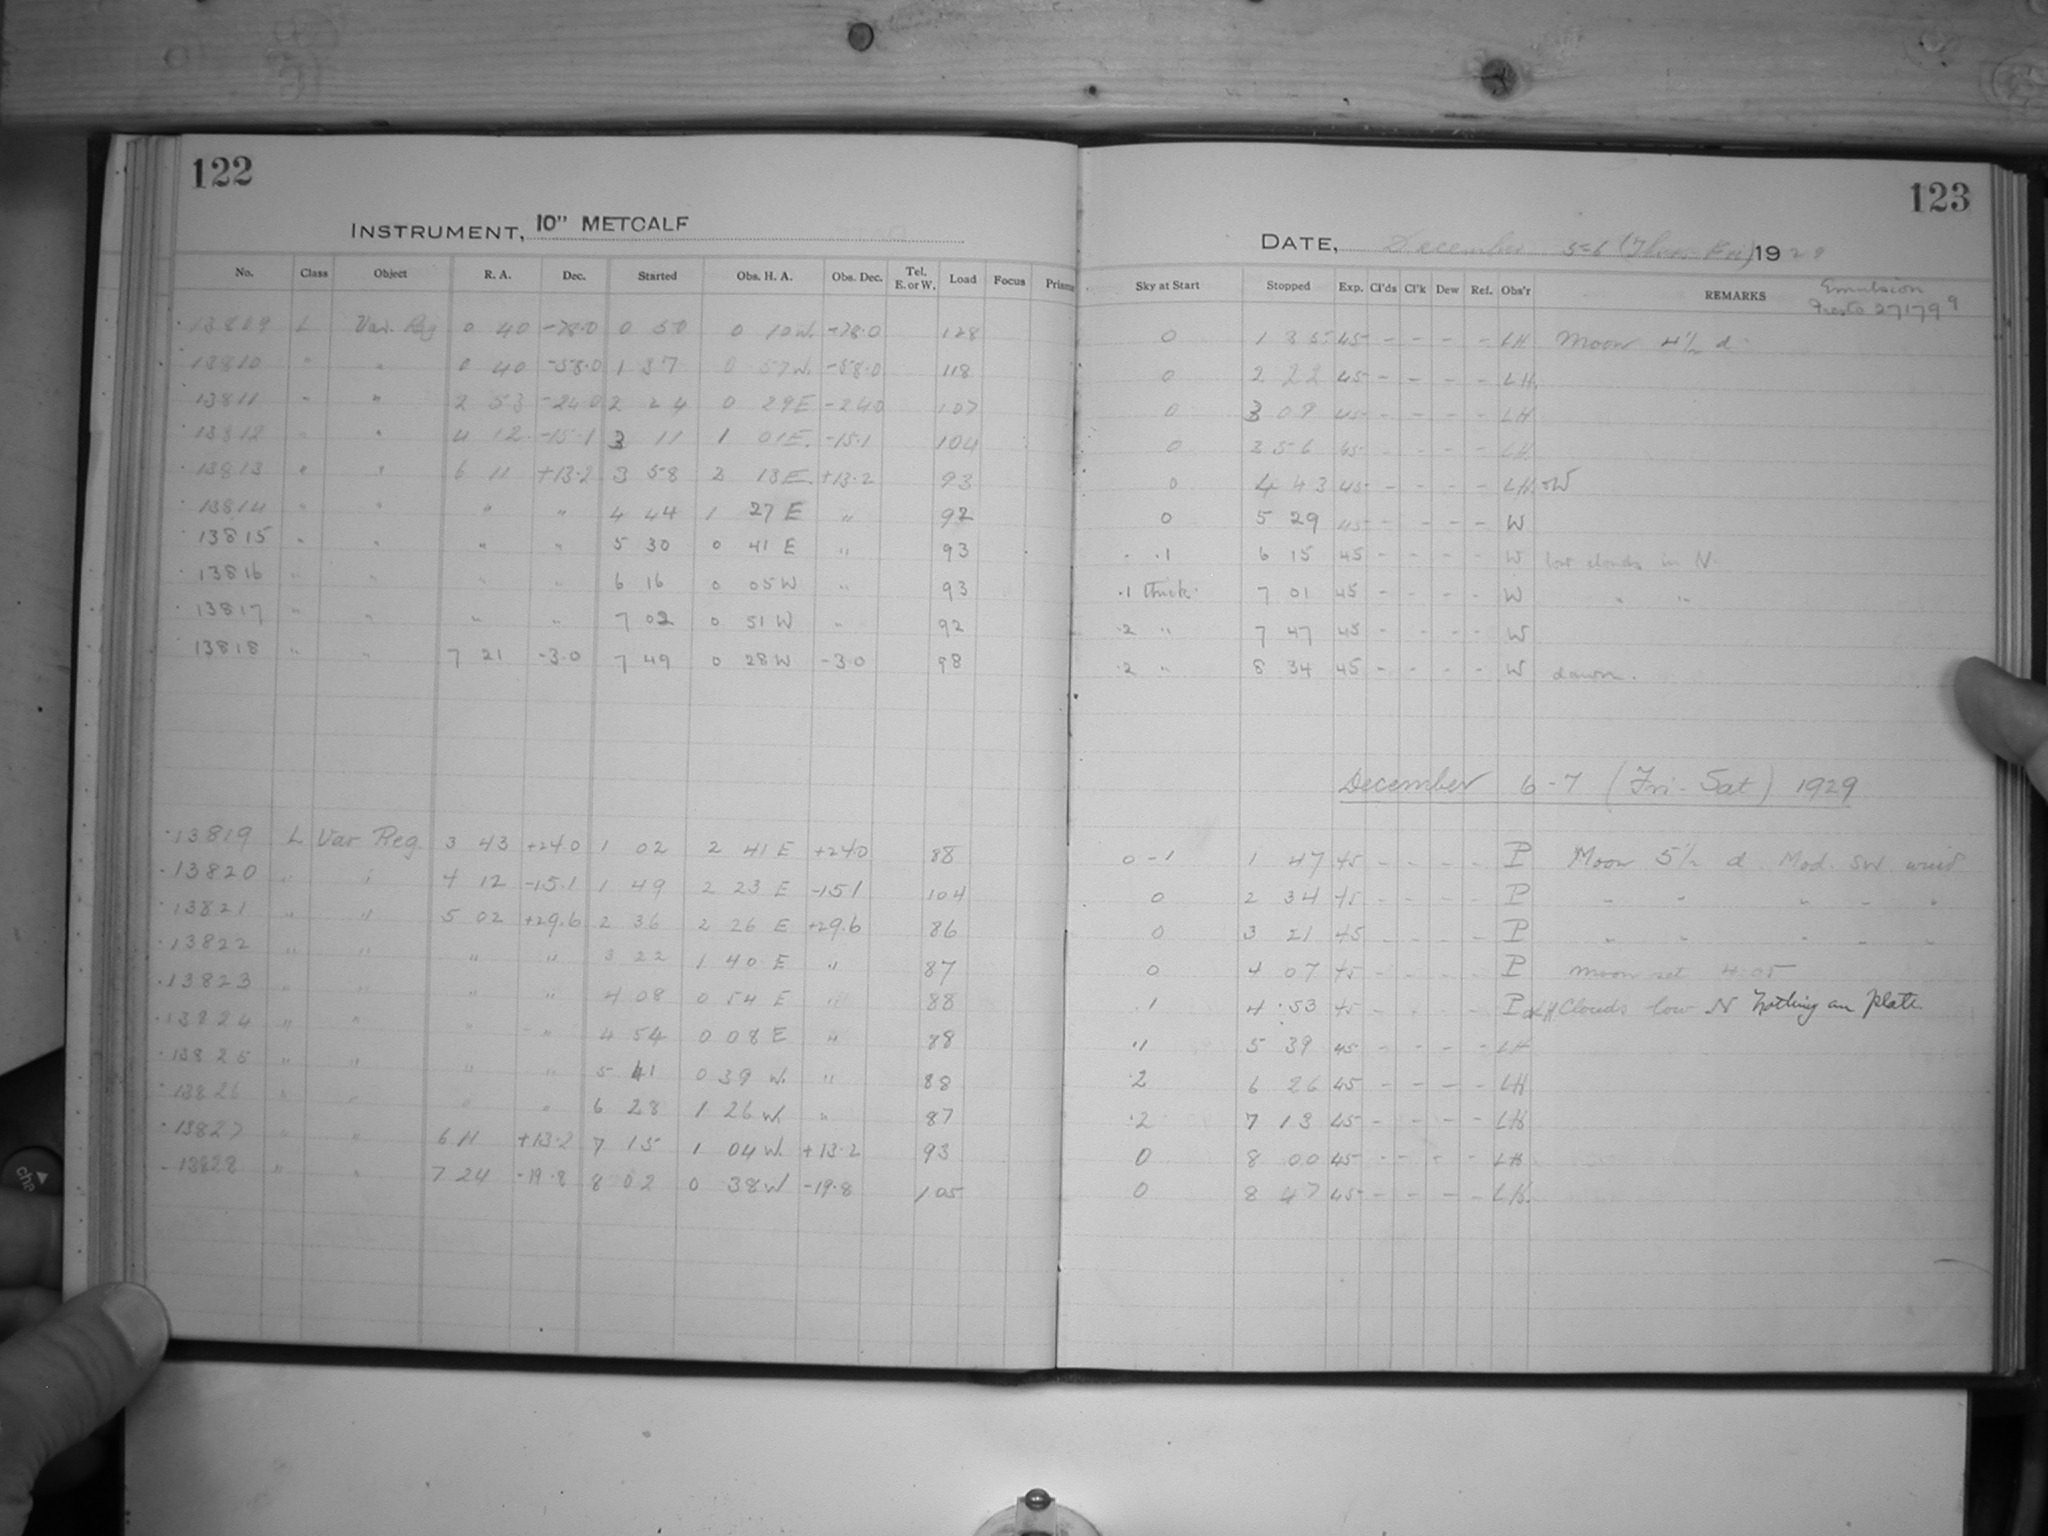 122
INSTRUMENT, 10" METCALF
No. Class Object R. A. Dec. Started Obs. H. A. Obs. Dec. Tel. E. or W. Load Focus Prisms
13809 L Var. Reg 0 40 -78.0 0 50 0 10 W. -78.0 128
13810 " " 0 40 -58.0 1 37 0 57 W. -58.0 118
13811 " " 2 53 -24.0 2 24 0 29 E -24.0 107
13812 " " 4 12 -15.1 3 11 1 01 E. -15.1 104
13813 " " 6 11 +13.2 3 58 2 13 E. +13.2 93
13814 " " " " 4 44 1 27 E " 92
13815 " " " " 5 30 0 41 E " 93
13816 " " " " 6 16 0 05 W " 93
13817 " " " " 7 02 0 51 W " 92
13818 " " 7 21 -3.0 7 49 0 28 W -3.0 98
13819 L Var Reg 3 43 +24.0 1 02 2 41 E +24.0 88
13820 " " 4 12 -15.1 1 49 2 23 E -15.1 104
13821 " " 5 02 +29.6 2 36 2 26 E +29.6 86
13822 " " " " 3 22 1 40 E " 87
13823 " " " " 4 08 0 54 E " 88
13824 " " " " 4 54 0 08 E " 88
13825 " " " " 5 41 0 39 W. " 88
13826 " " " " 6 28 1 26 W. " 87
13827 " " 6 11 +13.2 7 15 1 04 W. +13.2 93
13828 " " 7 24 -19.8 8 02 0 38 W -19.8 105
123
DATE, December 5-6 (Thurs-Fri) 1929
Sky at Start Stopped Exp. Cl'ds Cl'k Dew Ref. Obs'r REMARKS
Emulsion
Presto 27179
0 1 35 45 - - - - LH Moon 4½ d.
0 2 22 45 - - - - LH.
0 3 09 45 - - - - LH
0 3 56 45 - - - - LH
0 4 43 45 - - - - LH. W
0 5 29 45 - - - - W
.1 6 15 45 - - - - W low clouds in N.
.1 thick 7 01 45 - - - - W " "
.2 " 7 47 45 - - - - W
.2 " 8 34 45 - - - - W dawn.
December 6-7 (Fri-Sat) 1929
0-1 1 47 45 - - - - P Moon 5½ d Mod. SW. wind
0 2 34 45 - - - - P " " " " "
0 3 21 45 - - - - P " " " " "
0 4 07 45 - - - - P moon set 4:05
.1 4 53 45 - - - - P & LH Clouds low N Nothing on plate
.1 5 39 45 - - - - LH
.2 6 26 45 - - - - LH
.2 7 13 45 - - - - LH
0 8 00 45 - - - - LH
0 8 47 45 - - - - LH.